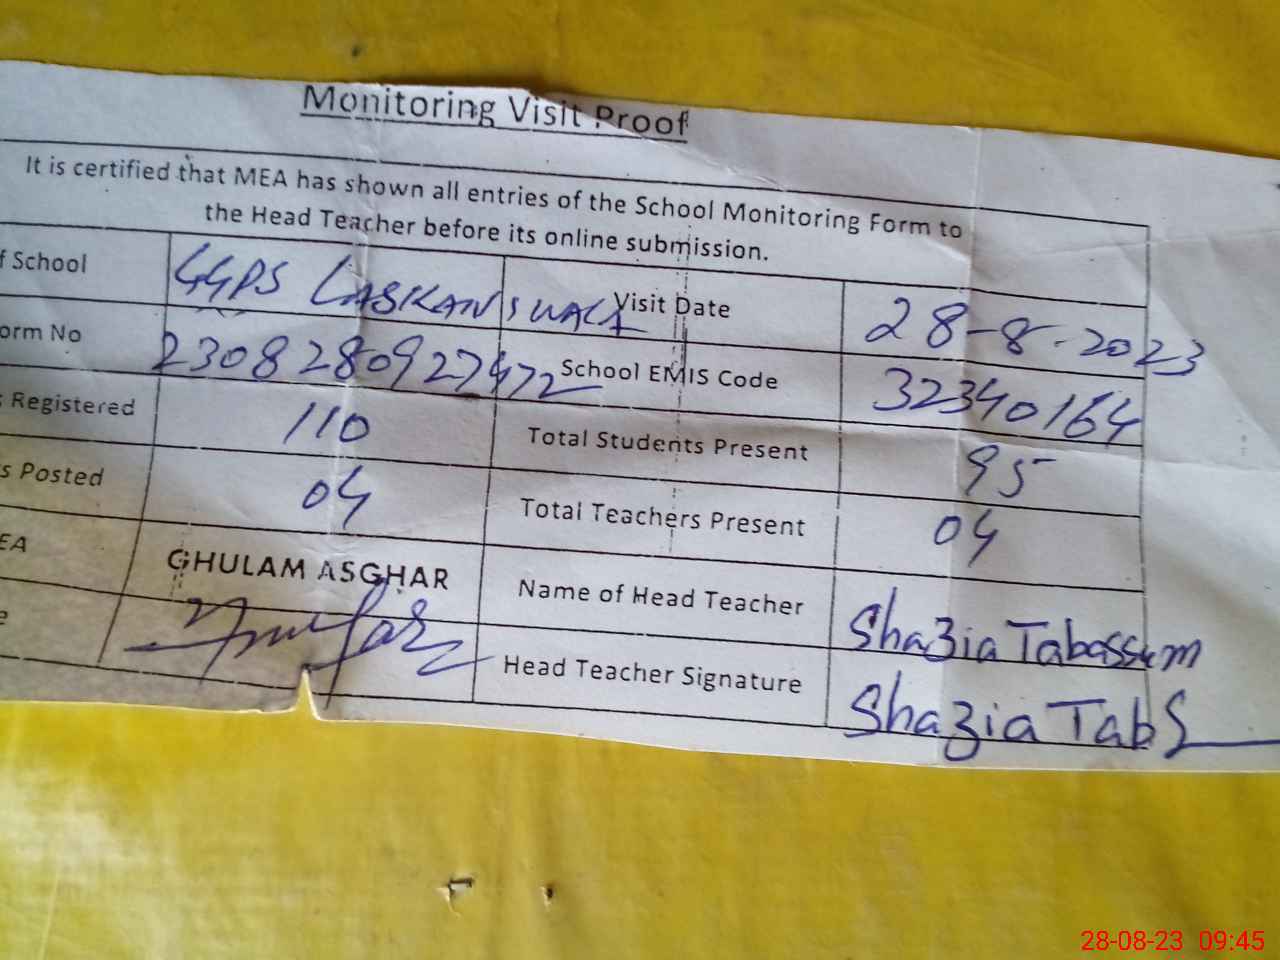 Monitoring Visit Proof
It is certified that MEA has shown all entries of the School Monitoring Form to
the Head Teacher before its online submission.
f School GGPS LASKANIWALA Visit Date 28-8-2023
orm No 2308280927472 School EMIS Code 32340164
Registered 110 Total Students Present 95
s Posted 04 Total Teachers Present 04
EA GHULAM ASGHAR Name of Head Teacher Shazia Tabassum
e Head Teacher Signature Shazia TabS
28-08-23 09:45